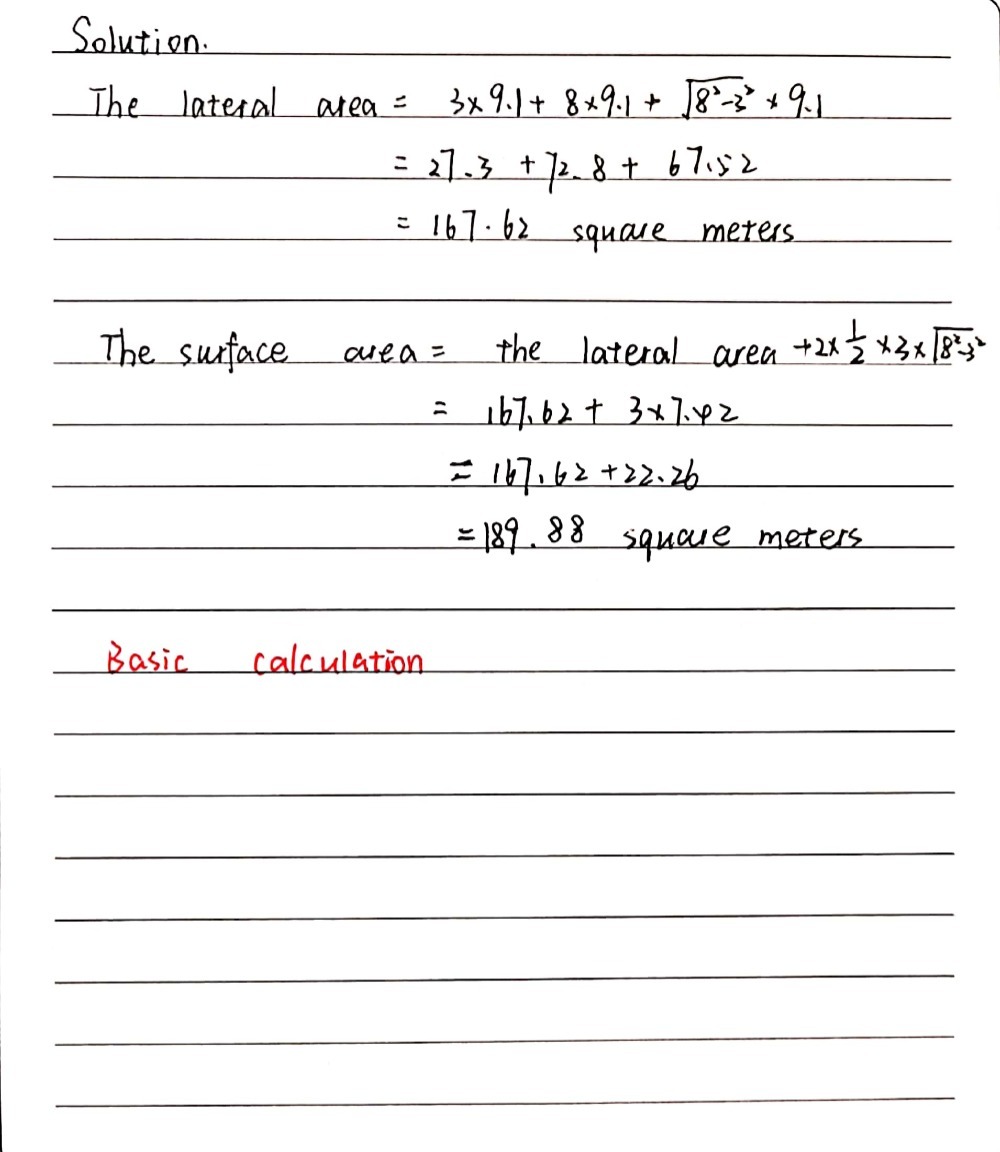 Solution.
The lateral area = 3×9.1 + 8×9.1 + √(8²-3²) × 9.1
= 27.3 + 72.8 + 67.52
= 167.62 square meters
The surface area = the lateral area +2×1/2×3×√(8²-3²)
= 167.62 + 3×7.42
= 167.62 + 22.26
= 189.88 square meters
Basic calculation